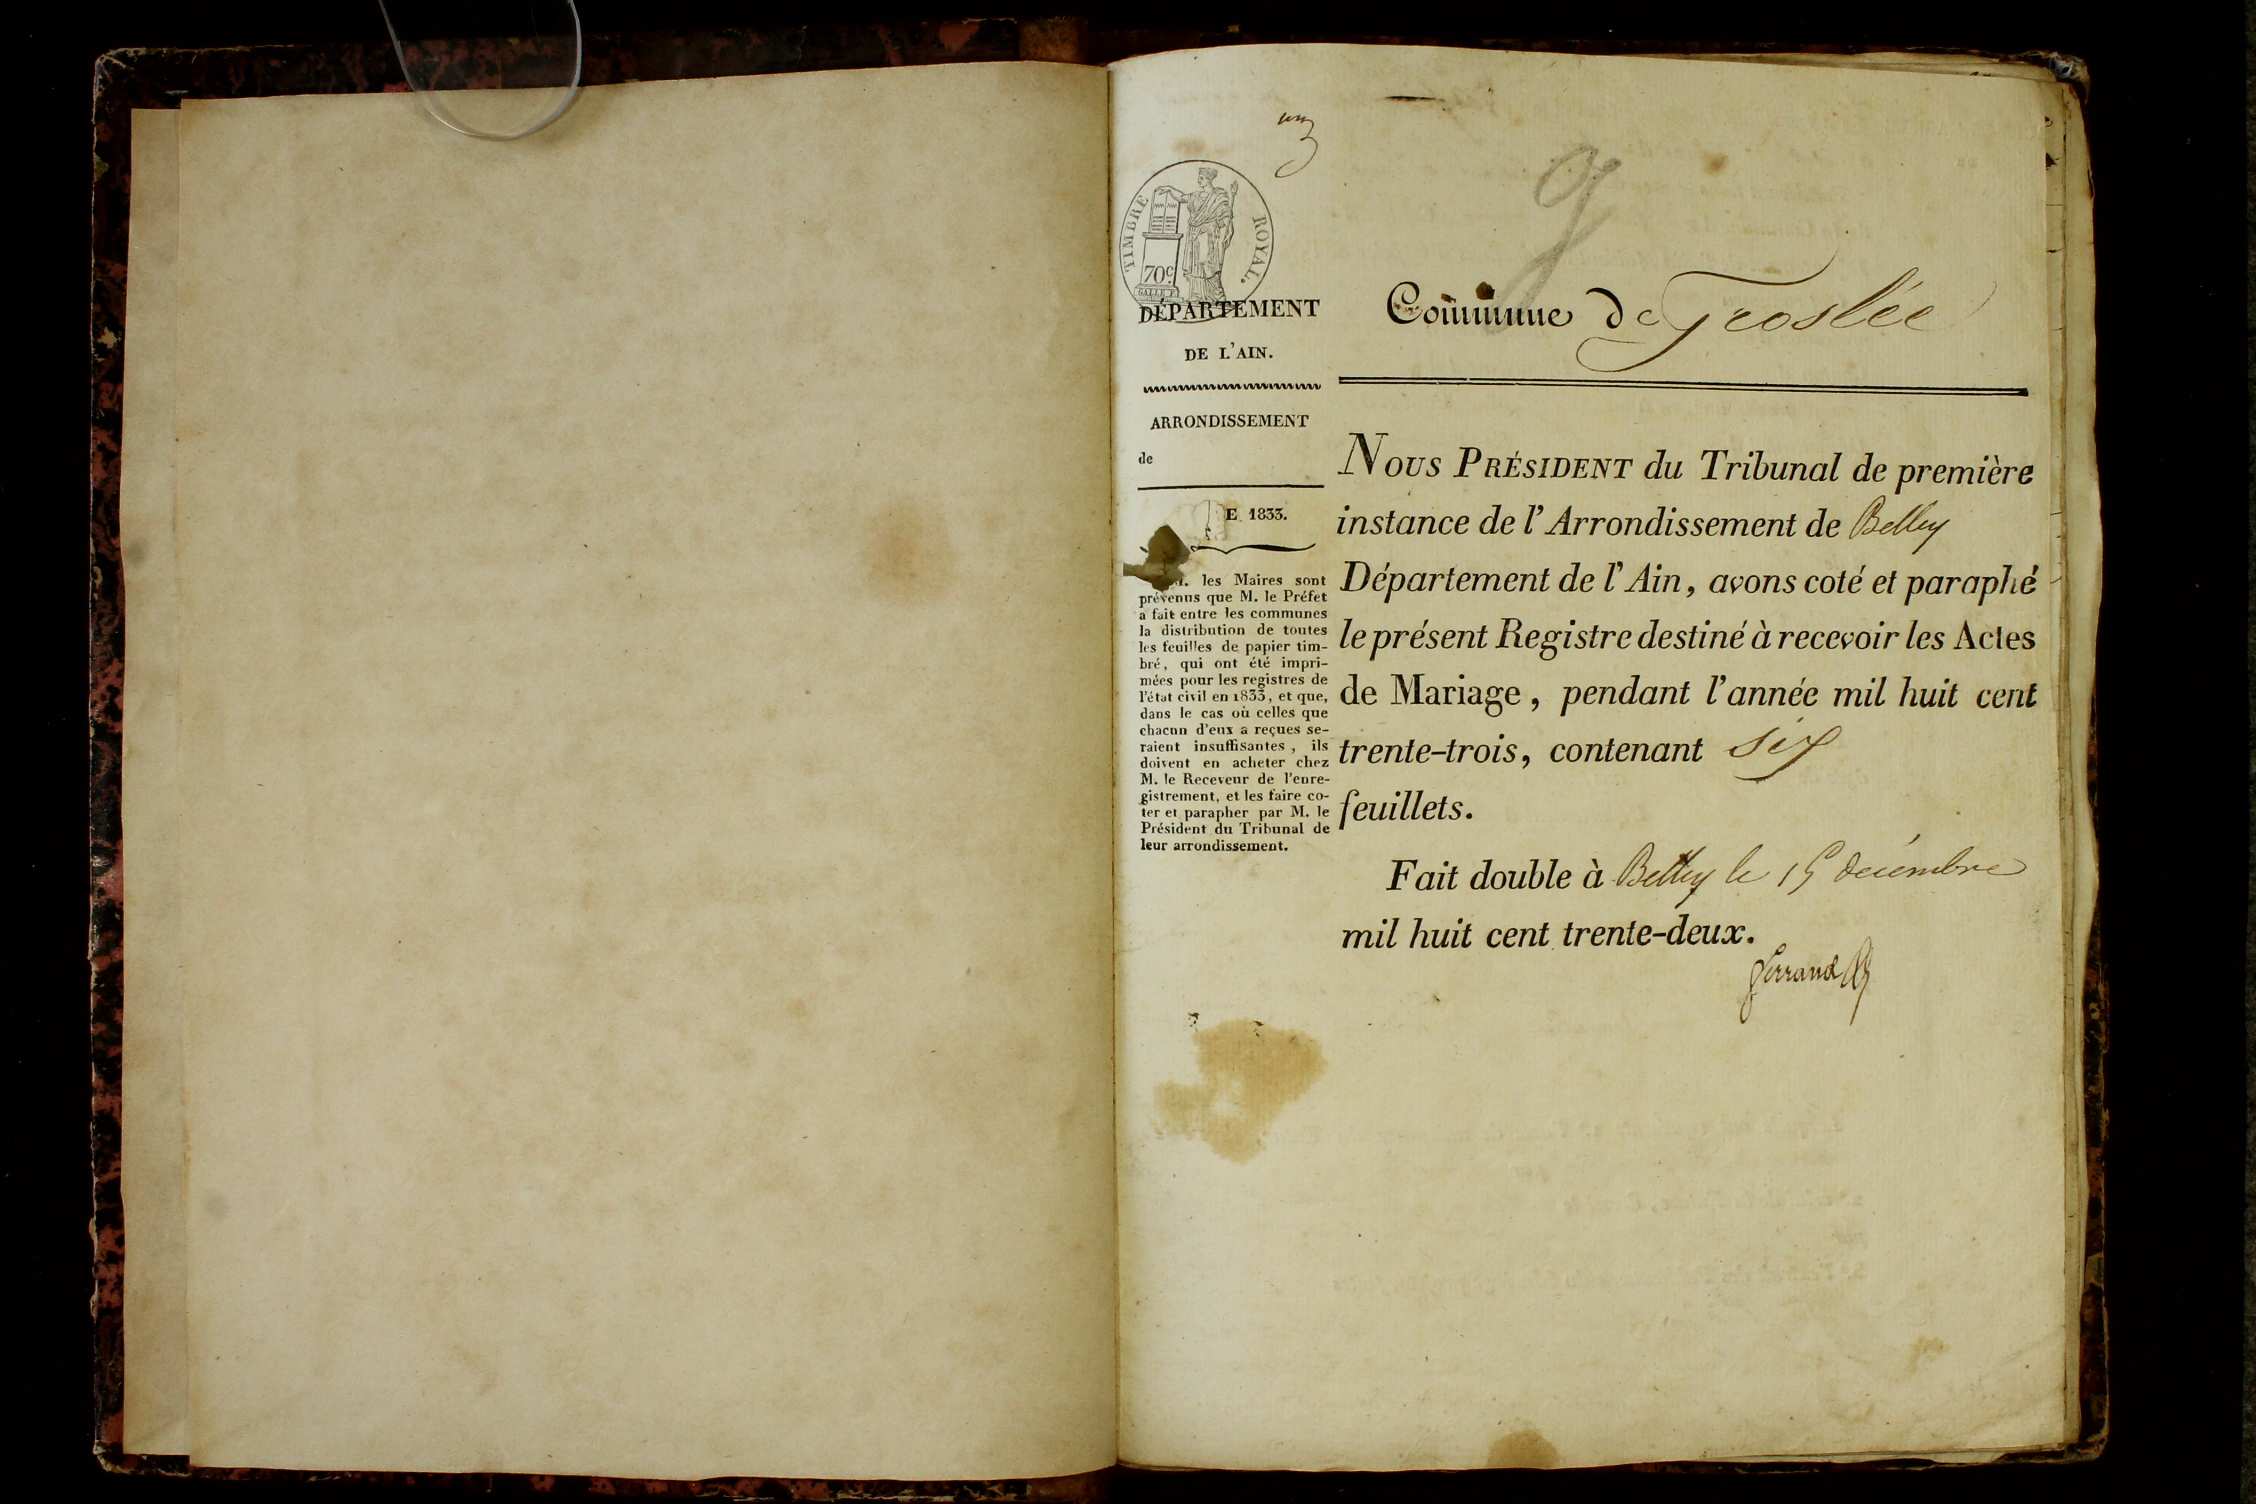 un
TIMBRE ROYAL.
70c.
GALLE F.
DÉPARTEMENT
DE L'AIN.
ARRONDISSEMENT
de
E 1833.
M. les Maires sont
prévenus que M. le Préfet
a fait entre les communes
la distribution de toutes
les feuilles de papier tim-
bré, qui ont été impri-
mées pour les registres de
l'état civil en 1833, et que,
dans le cas où celles que
chacun d'eux a reçues se-
raient insuffisantes, ils
doivent en acheter chez
M. le Receveur de l'enre-
gistrement, et les faire co-
ter et parapher par M. le
Président du Tribunal de
leur arrondissement.
g
Commune de Groslée
NOUS PRÉSIDENT du Tribunal de première
instance de l'Arrondissement de Belley
Département de l'Ain, avons coté et paraphé
le présent Registre destiné à recevoir les Actes
de Mariage, pendant l'année mil huit cent
trente-trois, contenant six
feuillets.
Fait double à Belley le 15 décembre
mil huit cent trente-deux.
Ferrand